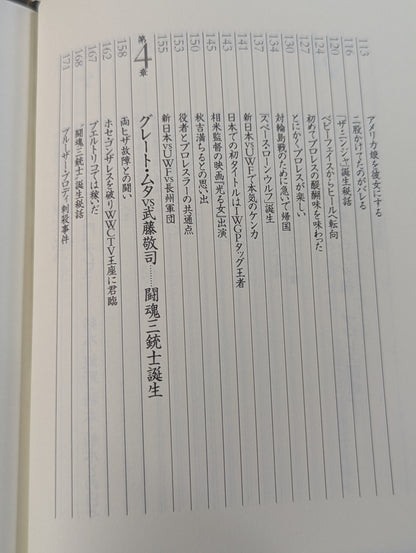 アメリカ娘を彼女にする 113
二股かけてたのがバレる 116
「ザ・ニンジャ」誕生秘話 120
ベビーフェイスからヒールへ転向 124
初めてプロレスの醍醐味を味わった 127
とにかくプロレスが楽しい 130
対輪島戦のために急いで帰国 134
「スペース・ローン・ウルフ」誕生 137
新日本vsUWFで本気のケンカ 141
日本での初タイトルはIWGPタッグ王者 143
相米監督の映画「光る女」出演 145
秋吉満ちるとの思い出 150
役者とプロレスラーの共通点 153
新日本vsUWFvs長州軍団 155
第4章 グレート・ムタvs武藤敬司……闘魂三銃士誕生
両ヒザ故障との闘い 158
ホセ・ゴンザレスを破りWWCTV王座に君臨 162
プエルトリコでは稼いだ 167
“闘魂三銃士”誕生秘話 168
ブルーザー・ブロディ刺殺事件 171